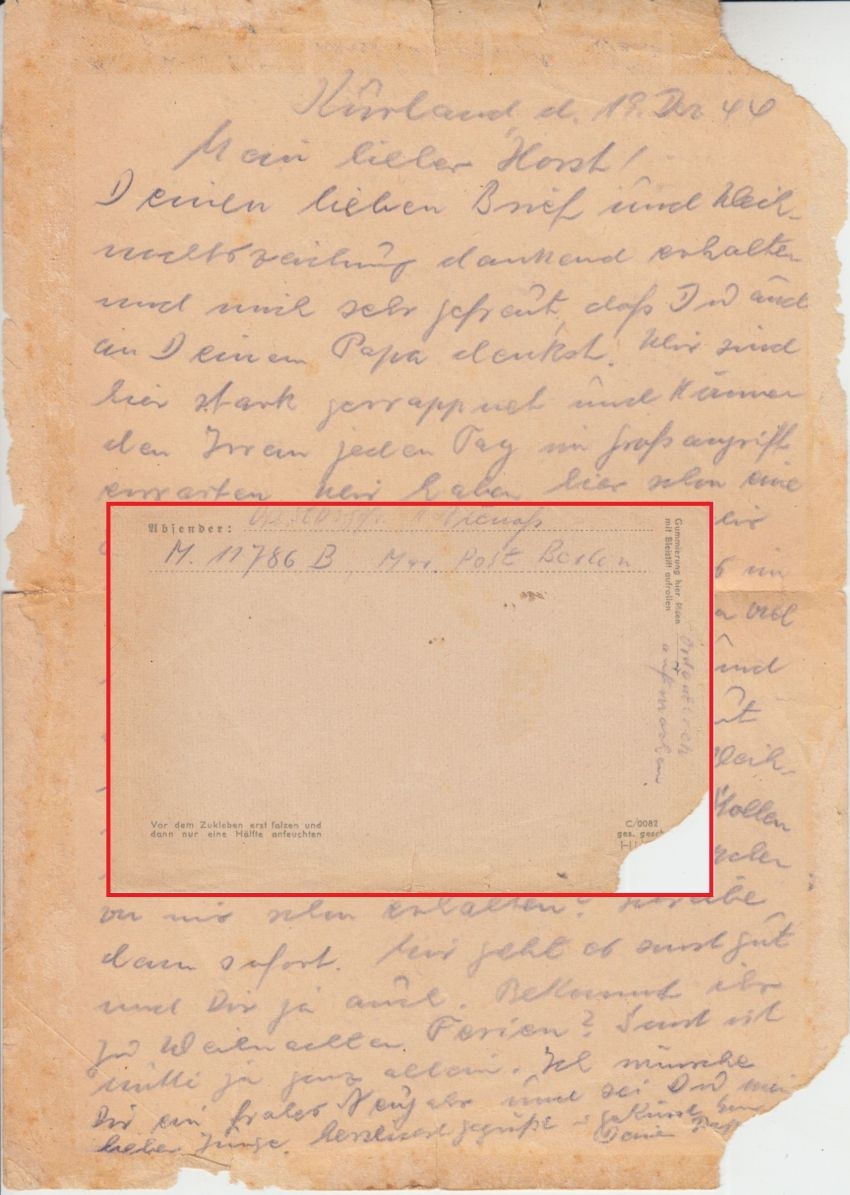 Kurland, d. 19. Dez 44
Mein lieber Horst!
Deinen lieben Brief und Weih-
nachtszeichung dankend erhalten
und mich sehr gefreut, daß Du auch
an Deinem Papa denkst. Wir sind
hier stark und können
den Iwan jeden Tag im Großangriff
erwarten Wir haben hier schon eine
Absender:
M. 11786 B, Mar. Post Berlin
Gummierung hier lösen
mit Bleistift aufrollen
Ordentlich
aufmachen
Vor dem Zukleben erst falzen und
dann nur eine Hälfte anfeuchten
C/0082
ges. gesch
im
und
Weih-
von mir schon erhalten? schreibe
dann sofort. Mir geht es sonst gut
und Dir ja auch. Bekommt ihr
zu Weihnachten Ferien? Sonst ist
Mutti ja ganz allein. Ich wünsche
Dir ein frohes Neujahr und sei Du mein
lieber Junge herzlichst gegrüßt u. geküsst
Deine